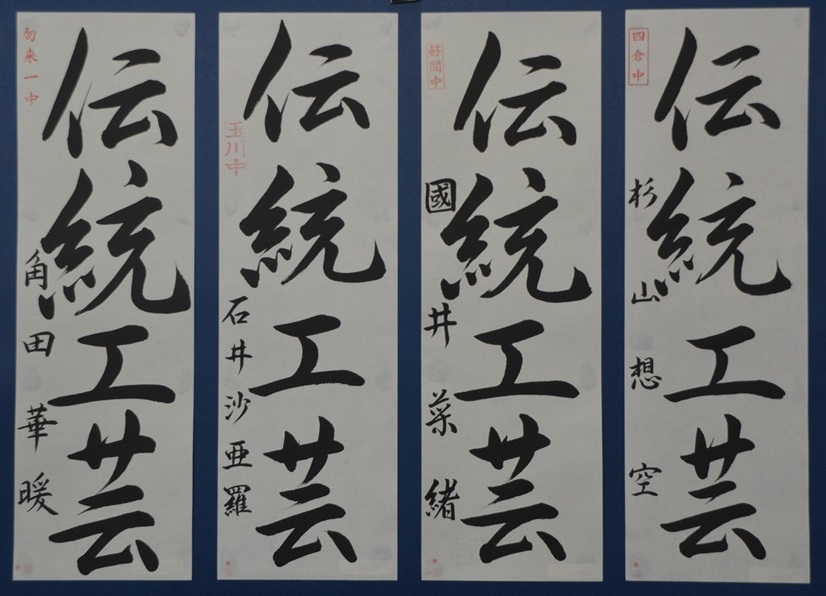 四倉中
伝統工芸
杉山想空
好間中
伝統工芸
國井菜緒
玉川中
伝統工芸
石井沙亜羅
勿来一中
伝統工芸
角田華暖